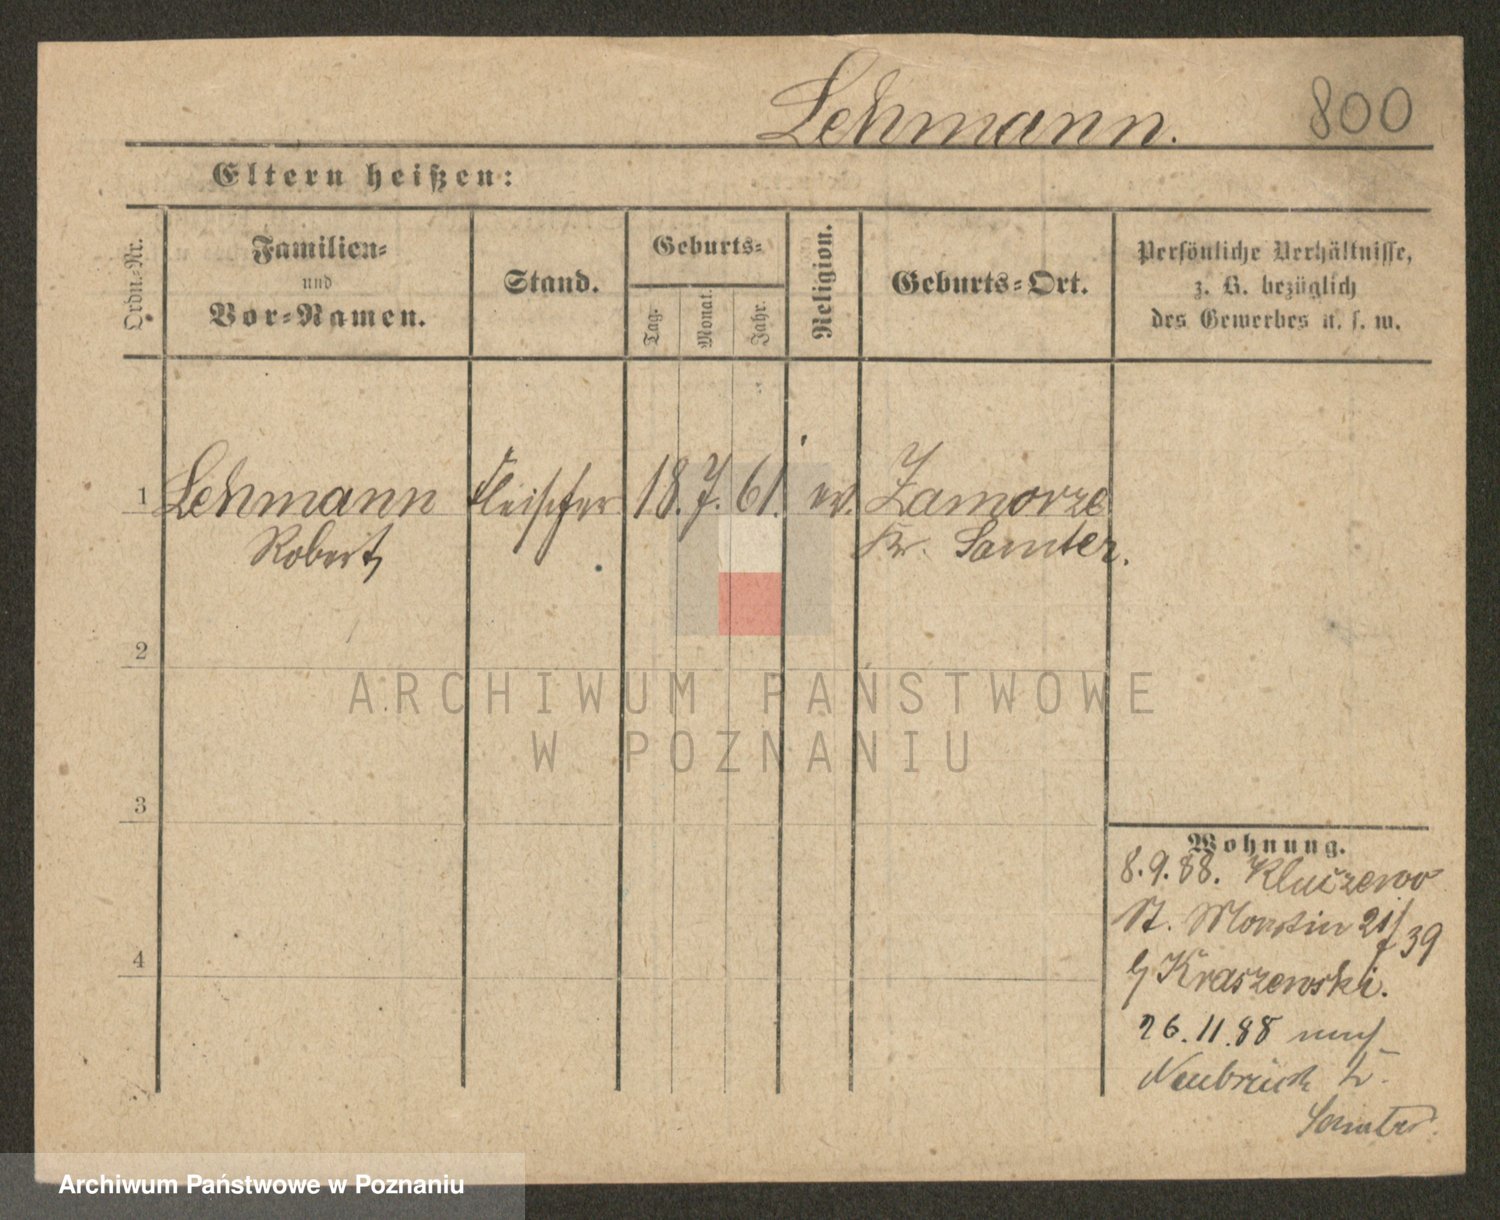 Lehmann.
800
Eltern heißen:
Ordn.=Nr.
Familien=
und
Vor=Namen.
Stand.
Geburts=
Tag.
Monat.
Jahr.
Religion.
Geburts=Ort.
Persönliche Verhältnisse,
z. B. bezüglich
des Gewerbes u. s. w.
1 Lehmann Fleischer 18. 7. 61. ev. Zamorze
Robert Kr. Samter.
2
ARCHIWUM PAŃSTWOWE
W POZNANIU
3
Wohnung.
8.9.88. Kluczewo
St. Martin 21/39
b/ Kraszewski.
4
26.11.88 nach
Neubrück b.
Samter.
Archiwum Państwowe w Poznaniu